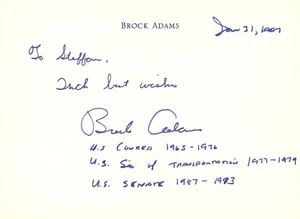 BROCK ADAMS
Jan 31, 1997
To Steffan,
Such best wishes
Brock Adams
U.S CONGRESS 1965-1976
U.S. Sec of TRANSPORTATION 1977-1979
U.S. SENATE 1987-1993